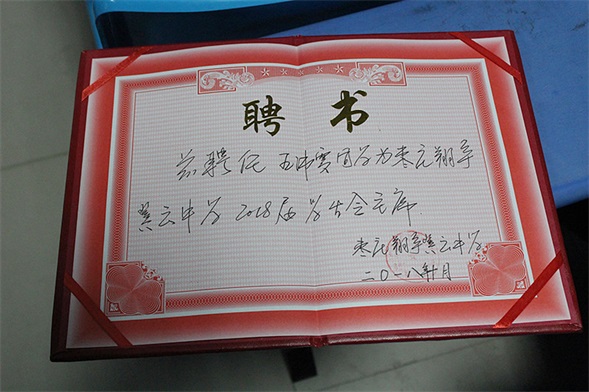 聘书
兹聘任 王中雯同学为枣庄翔宇
翼云中学 2018届 学生会主席.
枣庄翔宇翼云中学
二〇一八年十月